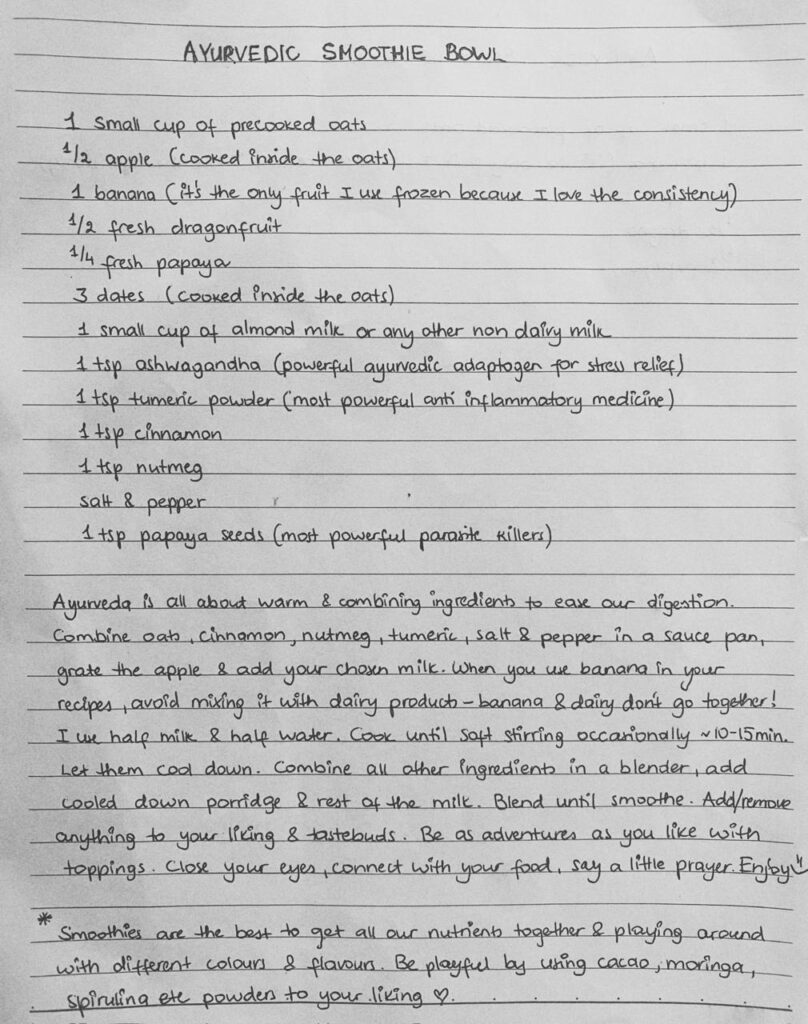 AYURVEDIC SMOOTHIE BOWL
1 small cup of precooked oats
1/2 apple (cooked inside the oats)
1 banana (it's the only fruit I use frozen because I love the consistency)
1/2 fresh dragonfruit
1/4 fresh papaya
3 dates (cooked inside the oats)
1 small cup of almond milk or any other non dairy milk
1 tsp ashwagandha (powerful ayurvedic adaptogen for stress relief)
1 tsp tumeric powder (most powerful anti inflammatory medicine)
1 tsp cinnamon
1 tsp nutmeg
salt & pepper
1 tsp papaya seeds (most powerful parasite killers)
Ayurveda is all about warm & combining ingredients to ease our digestion.
Combine oats, cinnamon, nutmeg, tumeric, salt & pepper in a sauce pan,
grate the apple & add your chosen milk. When you use banana in your
recipes, avoid mixing it with dairy products - banana & dairy don't go together!
I use half milk & half water. Cook until soft stirring occasionally ~10-15min.
Let them cool down. Combine all other ingredients in a blender, add
cooled down porridge & rest of the milk. Blend until smoothe. Add/remove
anything to your liking & tastebuds. Be as adventures as you like with
toppings. Close your eyes, connect with your food, say a little prayer. Enjoy
* Smoothies are the best to get all our nutrients together & playing around
with different colours & flavours. Be playful by using cacao, moringa,
spirulina etc powders to your liking ♡.